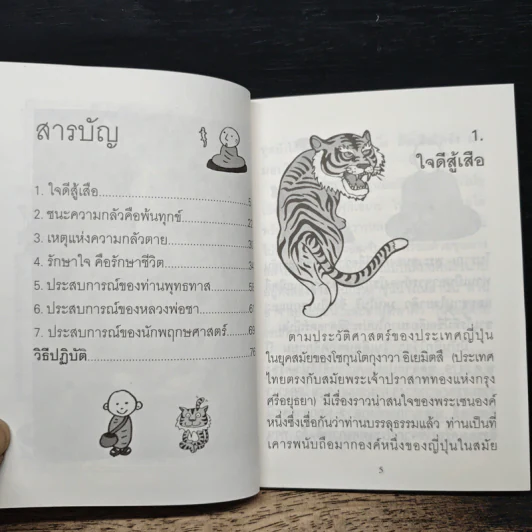 สารบัญ
1. ใจดีสู้เสือ.................................5
2. ชนะความกลัวคือพ้นทุกข์
3. เหตุแห่งความกลัวตาย
4. รักษาใจ คือรักษาชีวิต
5. ประสบการณ์ของท่านพุทธทาส
6. ประสบการณ์ของหลวงพ่อชา
7. ประสบการณ์ของนักพฤกษศาสตร์
วิธีปฏิบัติ
1.
ใจดีสู้เสือ
ตามประวัติศาสตร์ของประเทศญี่ปุ่น
ในยุคสมัยของโชกุนโตกุงาวา อิเยมิตสึ (ประเทศ
ไทยตรงกับสมัยพระเจ้าปราสาททองแห่งกรุง
ศรีอยุธยา) มีเรื่องราวน่าสนใจของพระเซนองค์
หนึ่งซึ่งเชื่อกันว่าท่านบรรลุธรรมแล้ว ท่านเป็นที่
เคารพนับถือมากองค์หนึ่งของญี่ปุ่นในสมัย
5